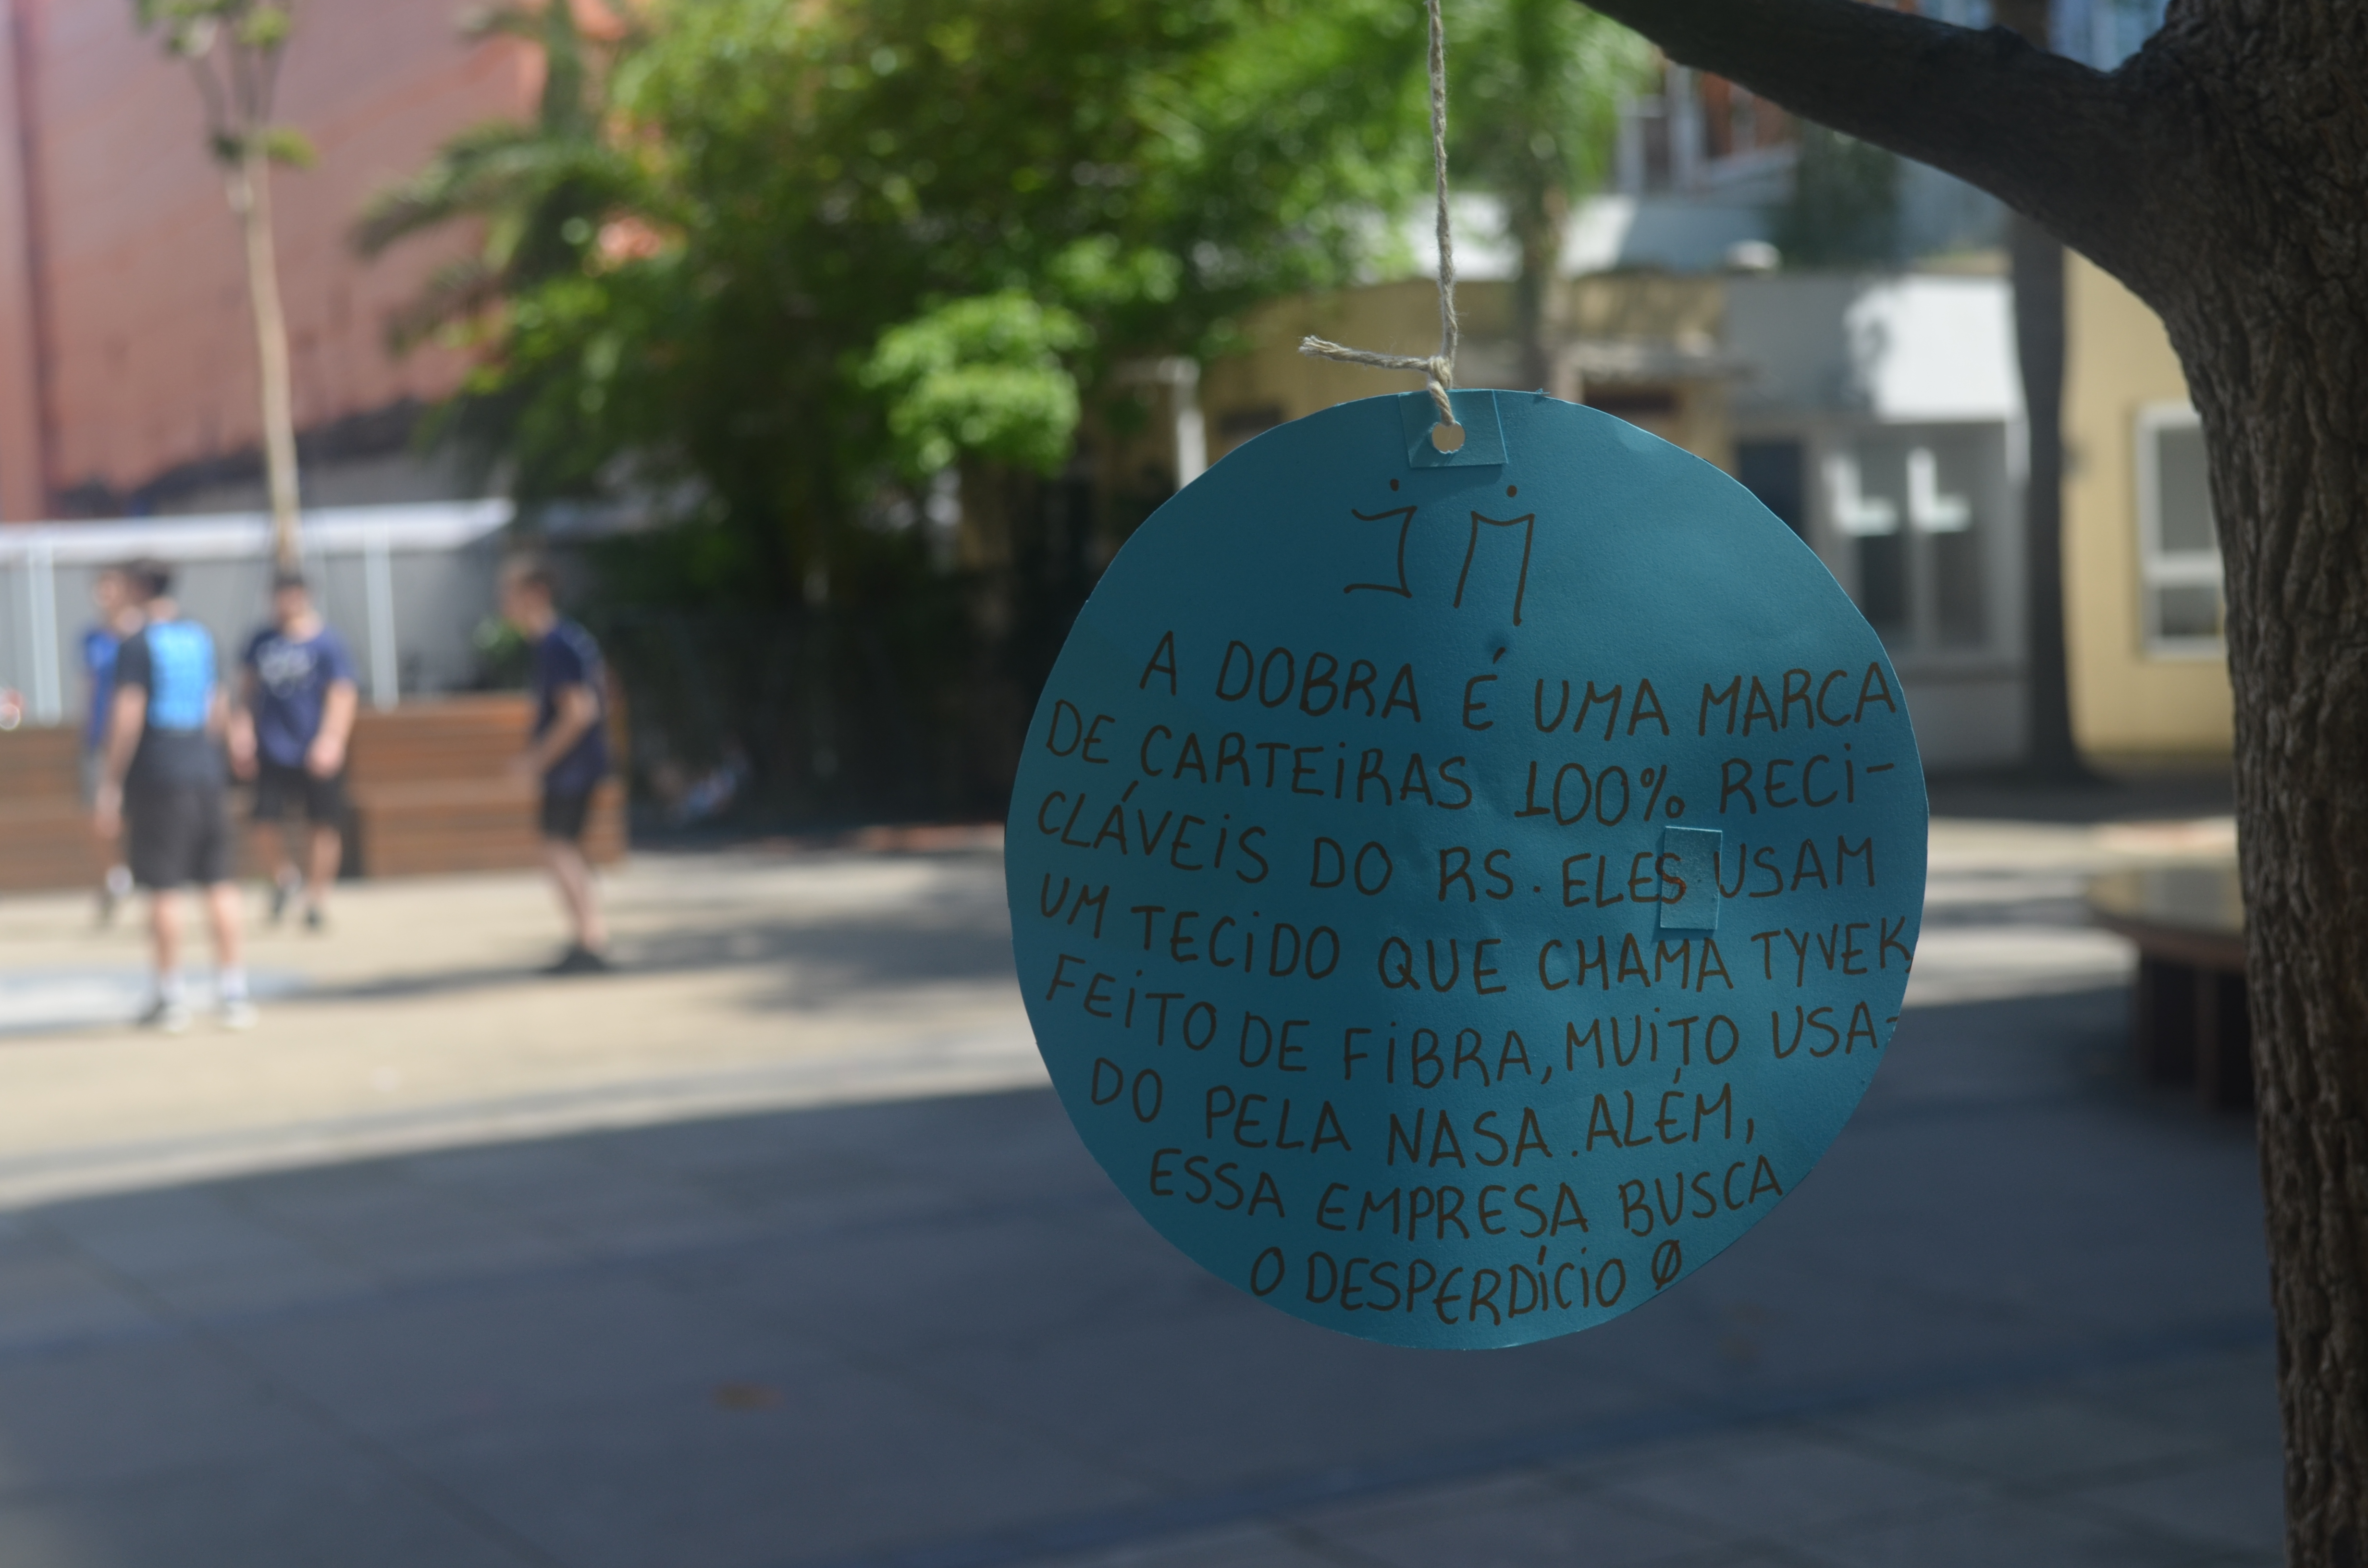 A DOBRA É UMA MARCA
DE CARTEiRAS 100% RECi-
CLÁVEiS DO RS. ELES USAM
UM TECiDO QUE CHAMA TYVEK,
FEiTO DE FiBRA, MUiTO USA-
DO PELA NASA. ALÉM,
ESSA EMPRESA BUSCA
O DESPERDÍCiO Ø